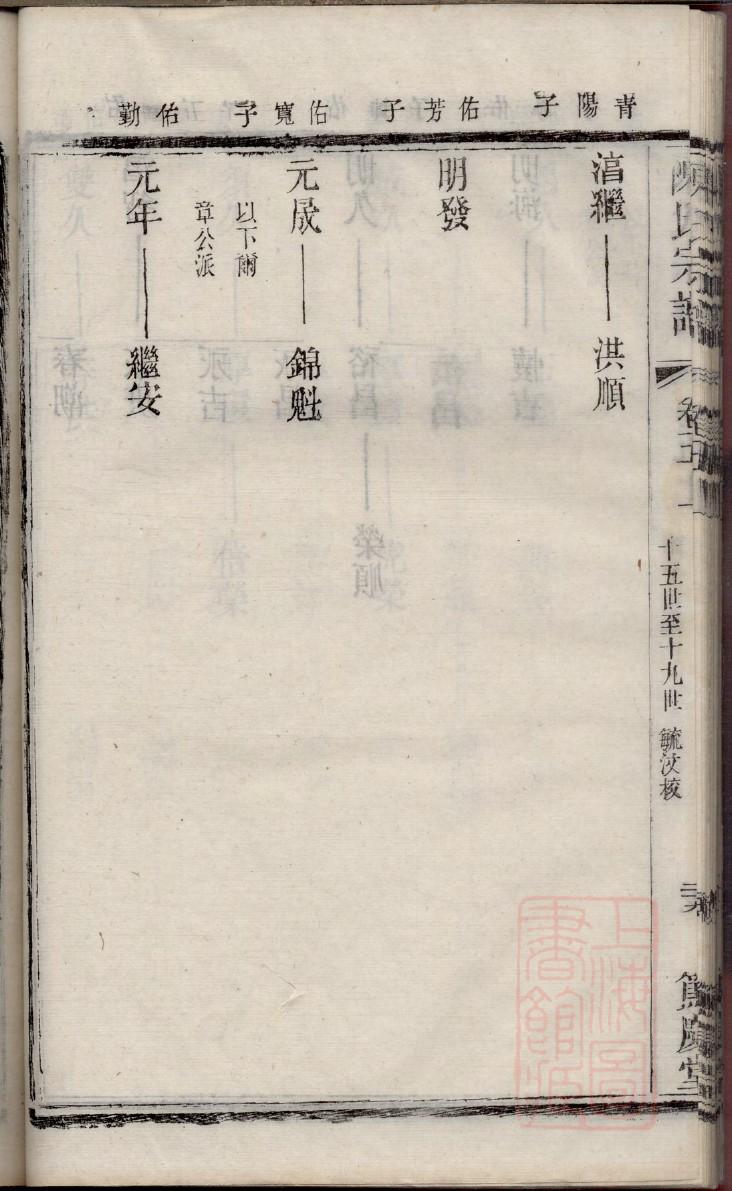 陳氏宗譜
卷三五
十五世至十九世 毓汶核
篤慶堂
青陽子
湻繼 洪順
佑芳子
明發
佑寬子
元晟 錦魁
以下爾
章公派
佑勤
元年 繼安
上海圖
書館藏